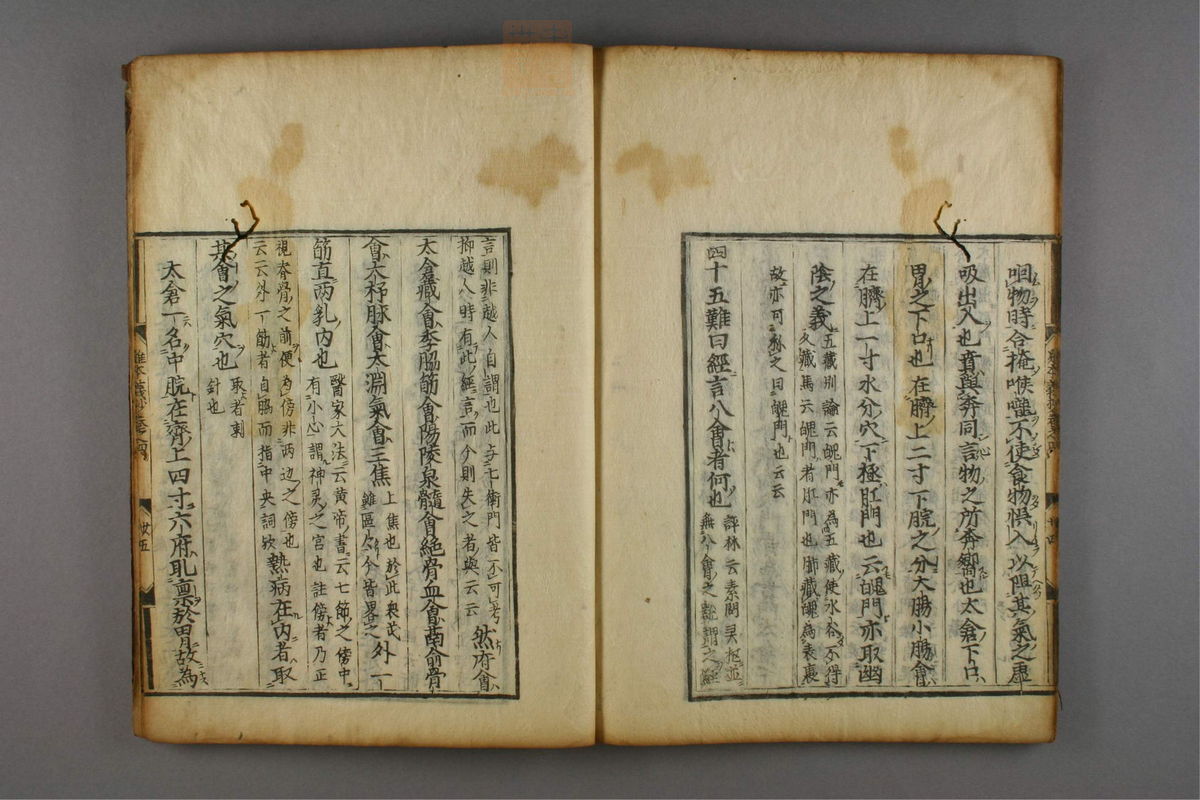 咀物時合掩喉嚨不使食物悞入以阻其氣之虚
吸出入也賁與奔同言物之所奔嚮也太倉下口
胃之下口也在臍上二寸下脘之分大腸小腸會
在臍上一寸水分穴下極肛門也云魄門亦取幽
陰之義五藏別論云魄門亦為五藏使水谷不得
久藏焉云魄門者肛門也肺藏魄為表裏
故亦可称之曰魄門也云云
四十五難曰經言八會者何也評林云素問灵枢並
無八會之說謂之經
言則非越人自謂也此与七衝門皆不可考
抑越人時有此經言而今則失之者與云云然府會
太倉藏會季脇筋會陽陵泉髓會絶骨血會鬲俞骨
會大杼脉會太淵氣會三焦上焦也於此表茂
雖區々今皆畧之外一
筋直両乳内也醫家大法云黄帝書云七節之傍中
有小心謂神灵之宮也註傍者乃正
視脊骨之前便為傍非两边之傍也
云云外一筋者自脇而指中央詞歟熱病在内者取
其會之氣穴也取者刺
針也
太倉一名中脘在臍上四寸六府取禀於胃故為
廿五